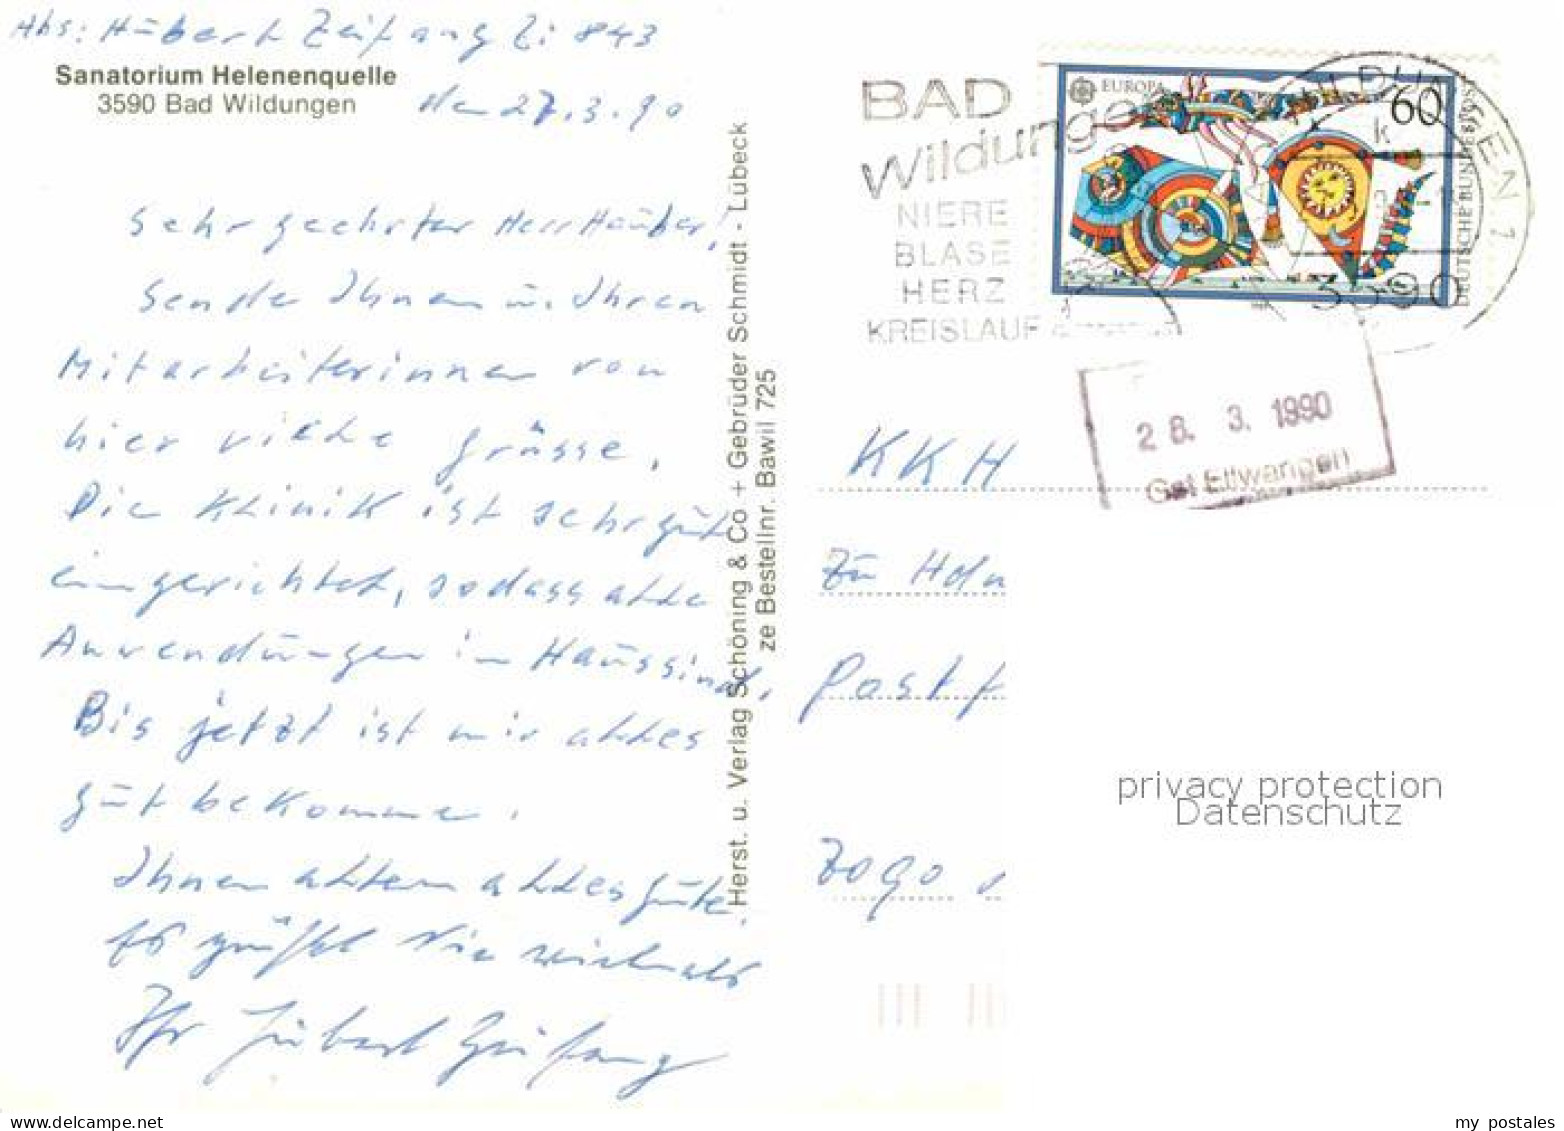 Abs: Hubert Zeifang Zi 843
Sanatorium Helenenquelle
3590 Bad Wildungen
den 27.3.90
Sehr geehrter Herr Hauber!
Sende Ihnen u. Ihren
Mitarbeiterinnen von
hier viele Grüsse.
Die Klinik ist sehr gut
eingerichtet, sodass alle
Anwendungen im Haus sind.
Bis jetzt ist mir alles
gut bekommen.
Ihnen allen alles Gute.
Es grüßt Sie vielmals
Ihr Hubert Zeifang
Herst. u. Verlag Schöning & Co + Gebrüder Schmidt · Lübeck
ze Bestellnr. Bawil 725
BAD
Wildungen
NIERE
BLASE
HERZ
KREISLAUF
EUROPA
60
DEUTSCHE BUNDESPOST
WILDUNGEN 1
3590
28. 3. 1990
Gst Ellwangen
KKH
Zu Hdn
Postf
7090
privacy protection
Datenschutz
www.delcampe.net
my_postales